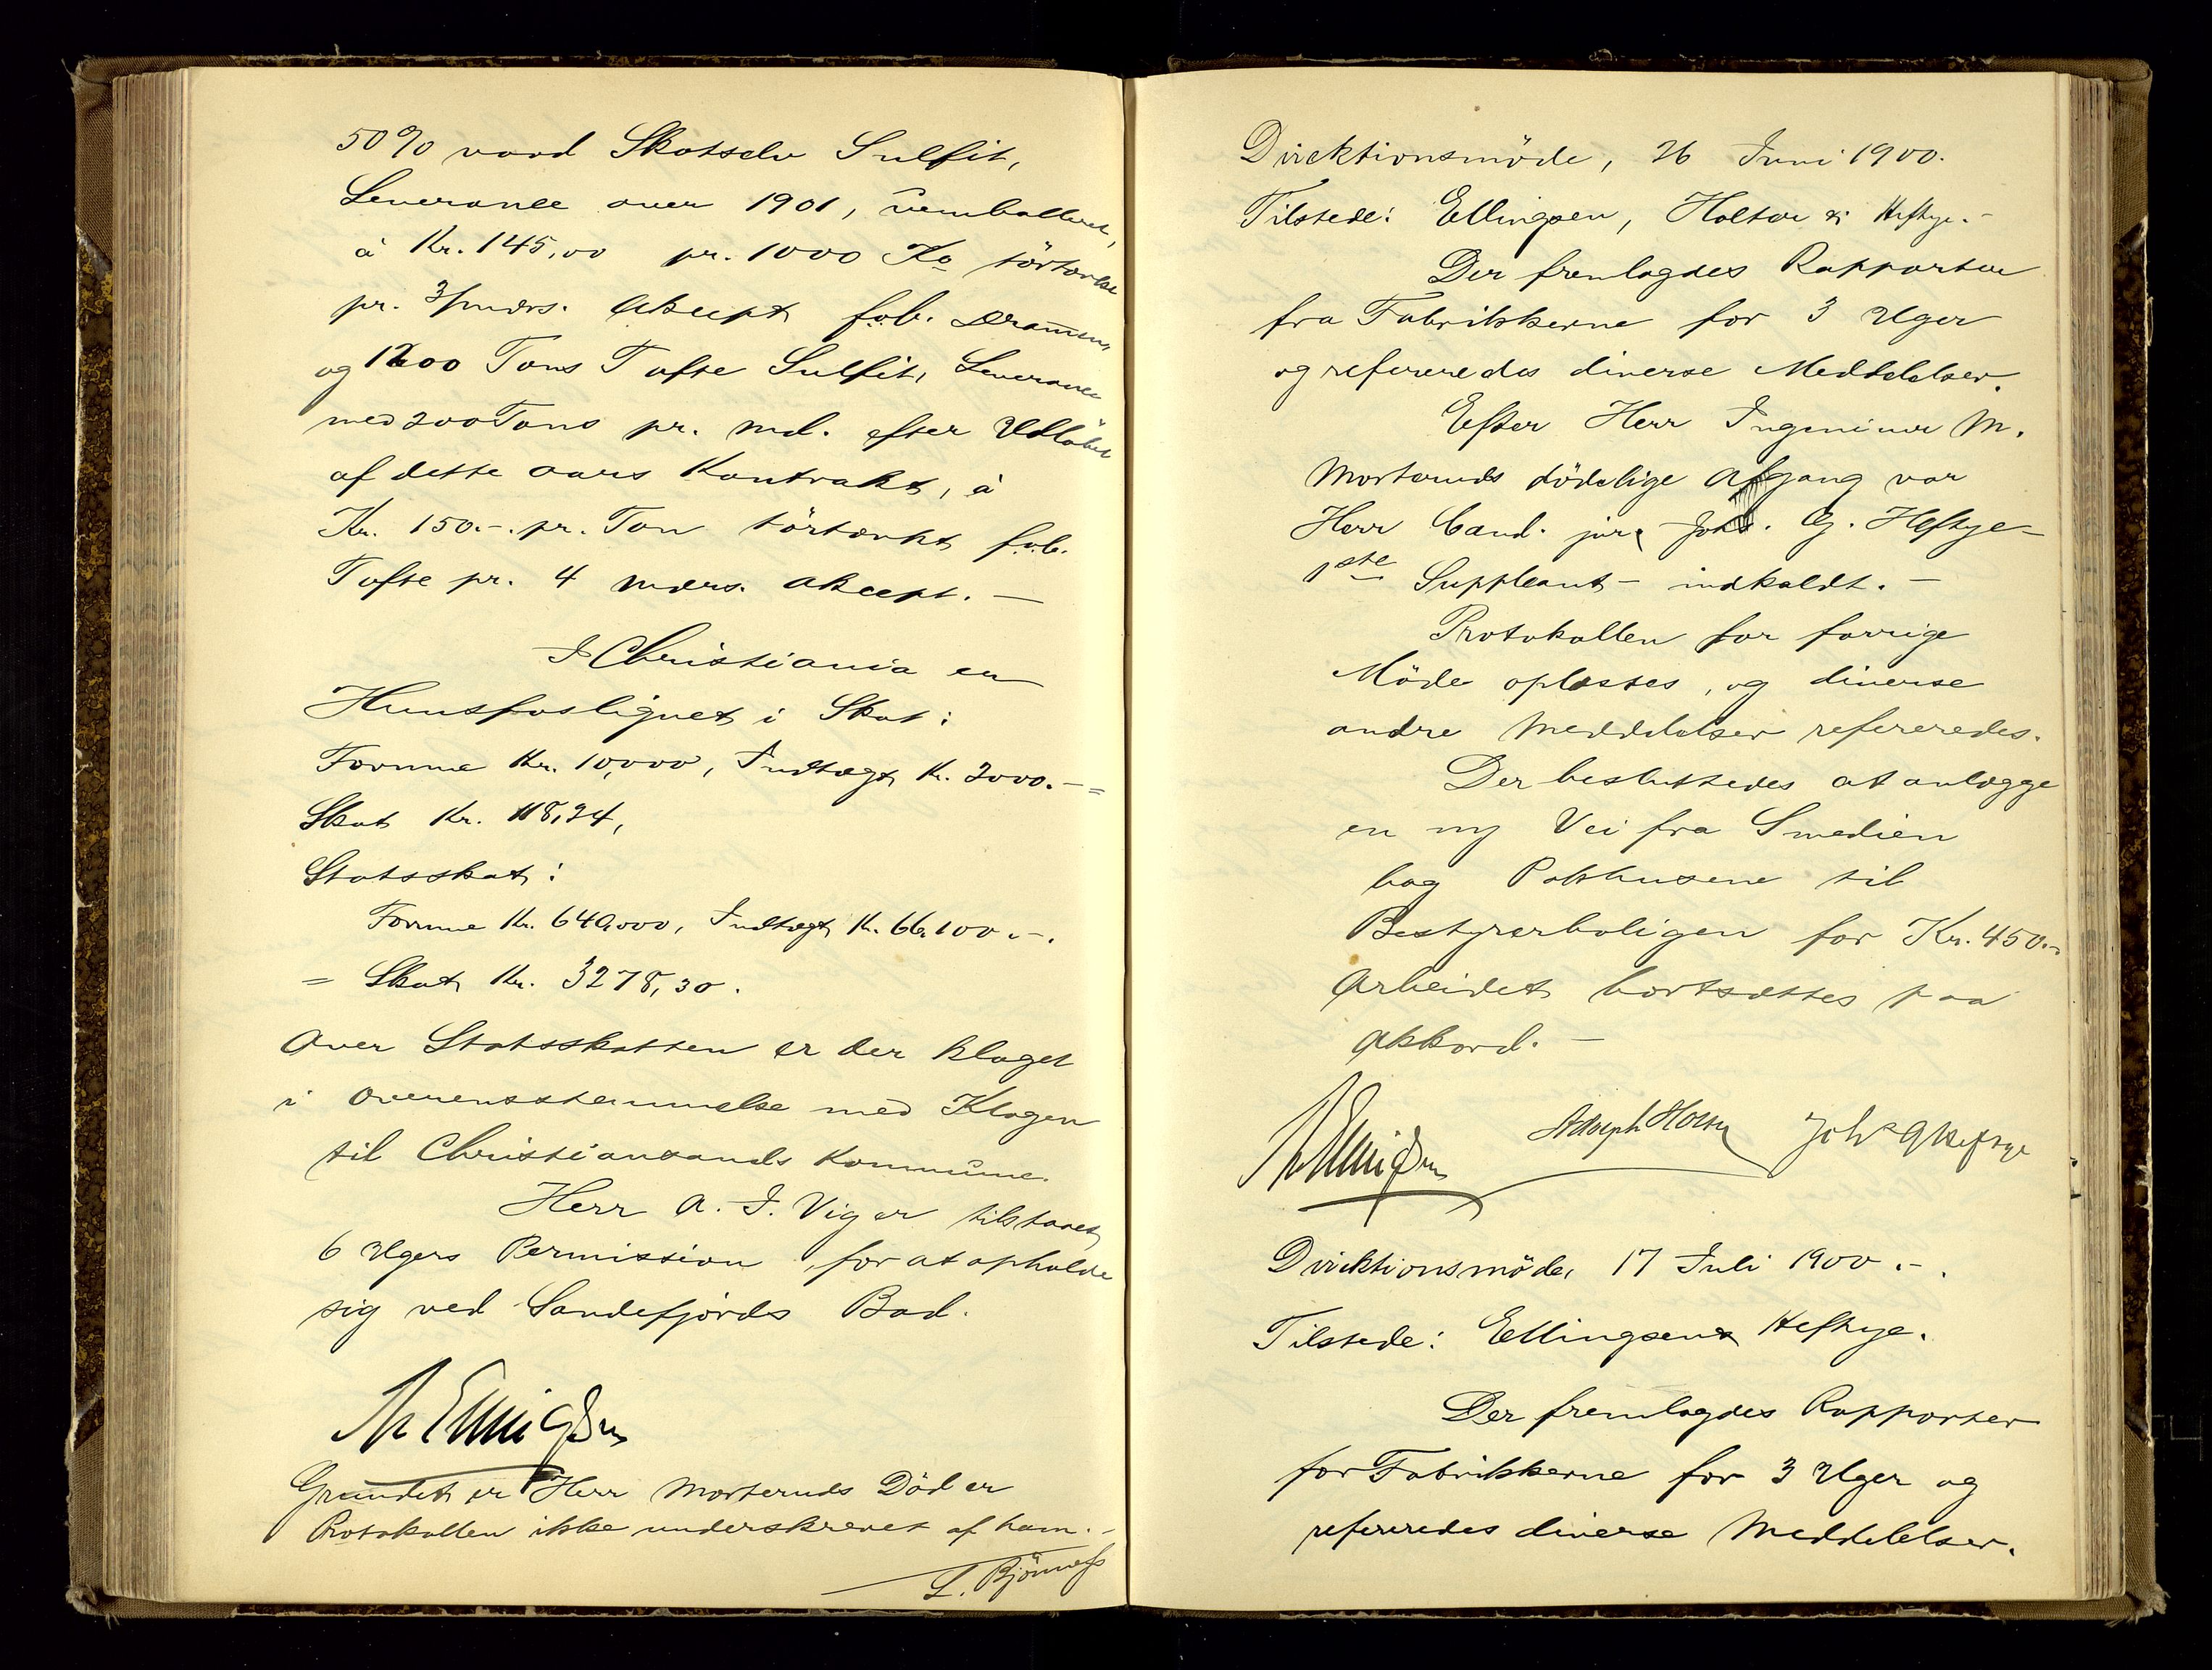 50% vaad Skotselv Sulfit,
Leverance over 1901, uemballeret,
à Kr. 145,00 pr. 1000 Ko törtænkt
pr. 3/mdrs. Akcept f.o.b. Drammen,
og 1200 Tons Tofte Sulfit, Leverance
med 200 Tons pr. md. efter Udlöbet
af dette aars Kontrakt, à
Kr. 150.-. pr. Ton törtænkt f.o.b.
Tofte pr. 4 mdrs. akcept. —
I Christiania er
Hunsfos lignet i Skat:
Formue Kr. 10,000, Indtægt Kr. 2000.- =
Skat Kr. 118,24,
Statsskat:
Formue Kr. 640,000, Indtægt Kr. 66,100.-.
= Skat Kr. 3278,30.
Over Statsskatten er der klaget
i Overensstemmelse med Klagen
til Christianssands Kommune.
Herr A. I. Viger tilstaaet
6 Ugers Permission, for at opholde
sig ved Sandefjords Bad.
N Ellingsen
Grundet er Herr Morteruds Död er
Protokollen ikke underskrevet af ham. -
L. Björness
Direktionsmöde, 26 Juni 1900.
Tilstede: Ellingsen, Holter & Heftye. -
Der fremlagdes Rapporter
fra Fabrikkerne for 3 Uger
og refereredes diverse Meddelelser.
Efter Herr Ingeniuer M.
Morteruds dödelige Afgang var
Herr Cand. jur. Johs. G. Heftye -
1ste Suppleant - indkaldt. -
Protokollen for forrige
Möde oplæstes, og diverse
andre Meddelelser refereredes.
Der besluttedes at anlægge
en ny Vei fra Smedien
bag Pakhusene til
Bestyrerboligen for Kr. 450.-
Arbeidet bortsættes paa
Akkord. -
N Ellingsen Adolph Holter Johs G Heftye
Direktionsmöde, 17 Juli 1900.-.
Tilstede: Ellingsen & Heftye.
Der fremlagdes Rapporter
for Fabrikkerne for 3 Uger og
refereredes diverse Meddelelser.